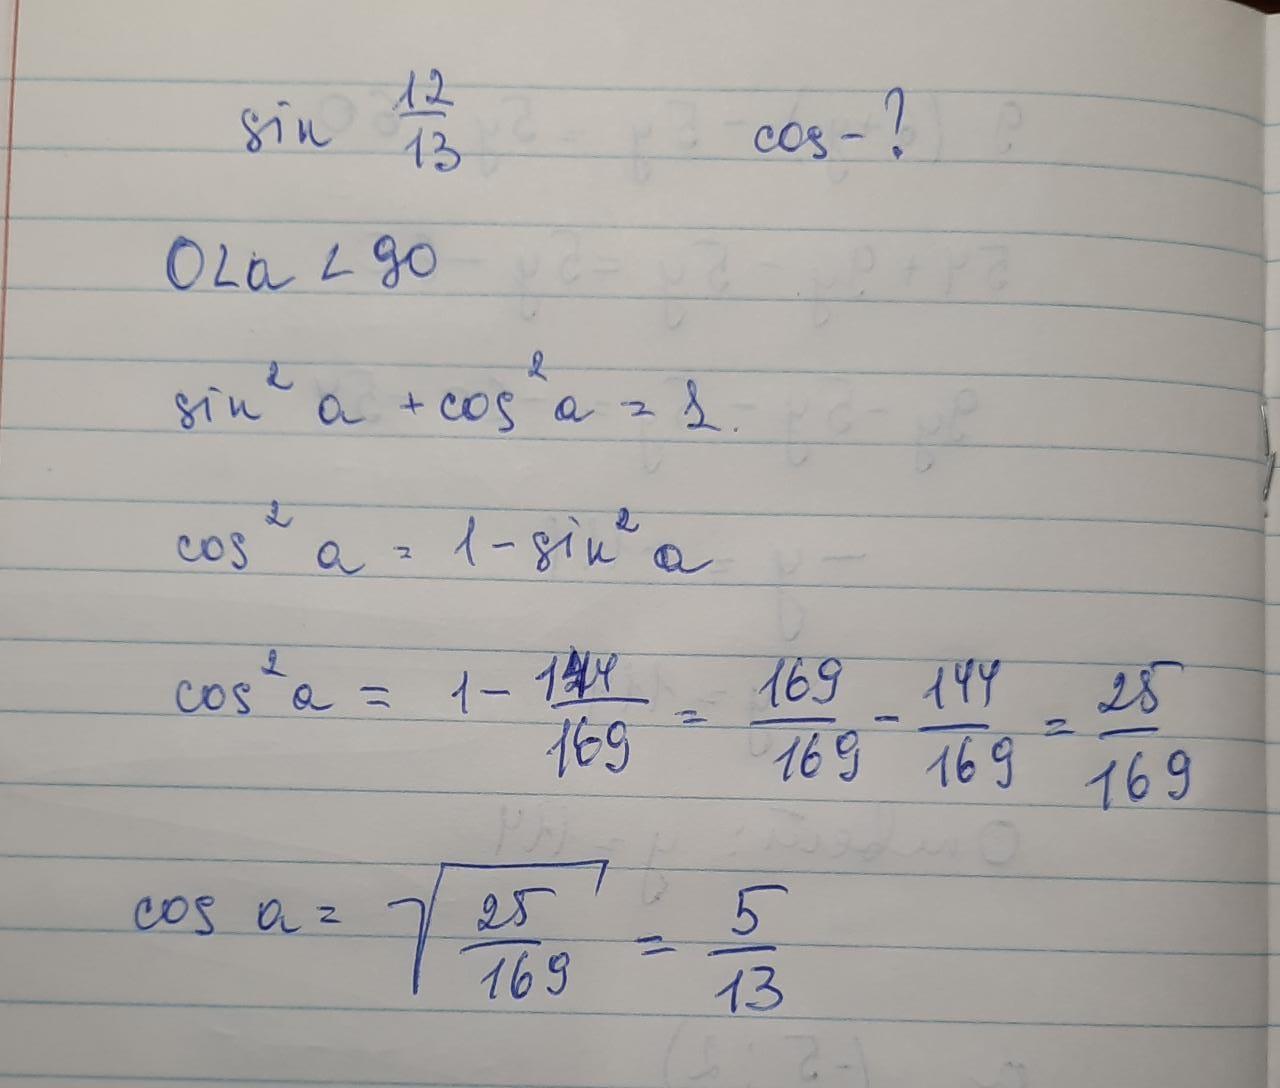 sin 12/13 cos - ?
0 < a < 90
sin² a + cos² a = 1.
cos² a = 1 - sin² a
cos² a = 1 - 144/169 = 169/169 - 144/169 = 25/169
cos a = √(25/169) = 5/13